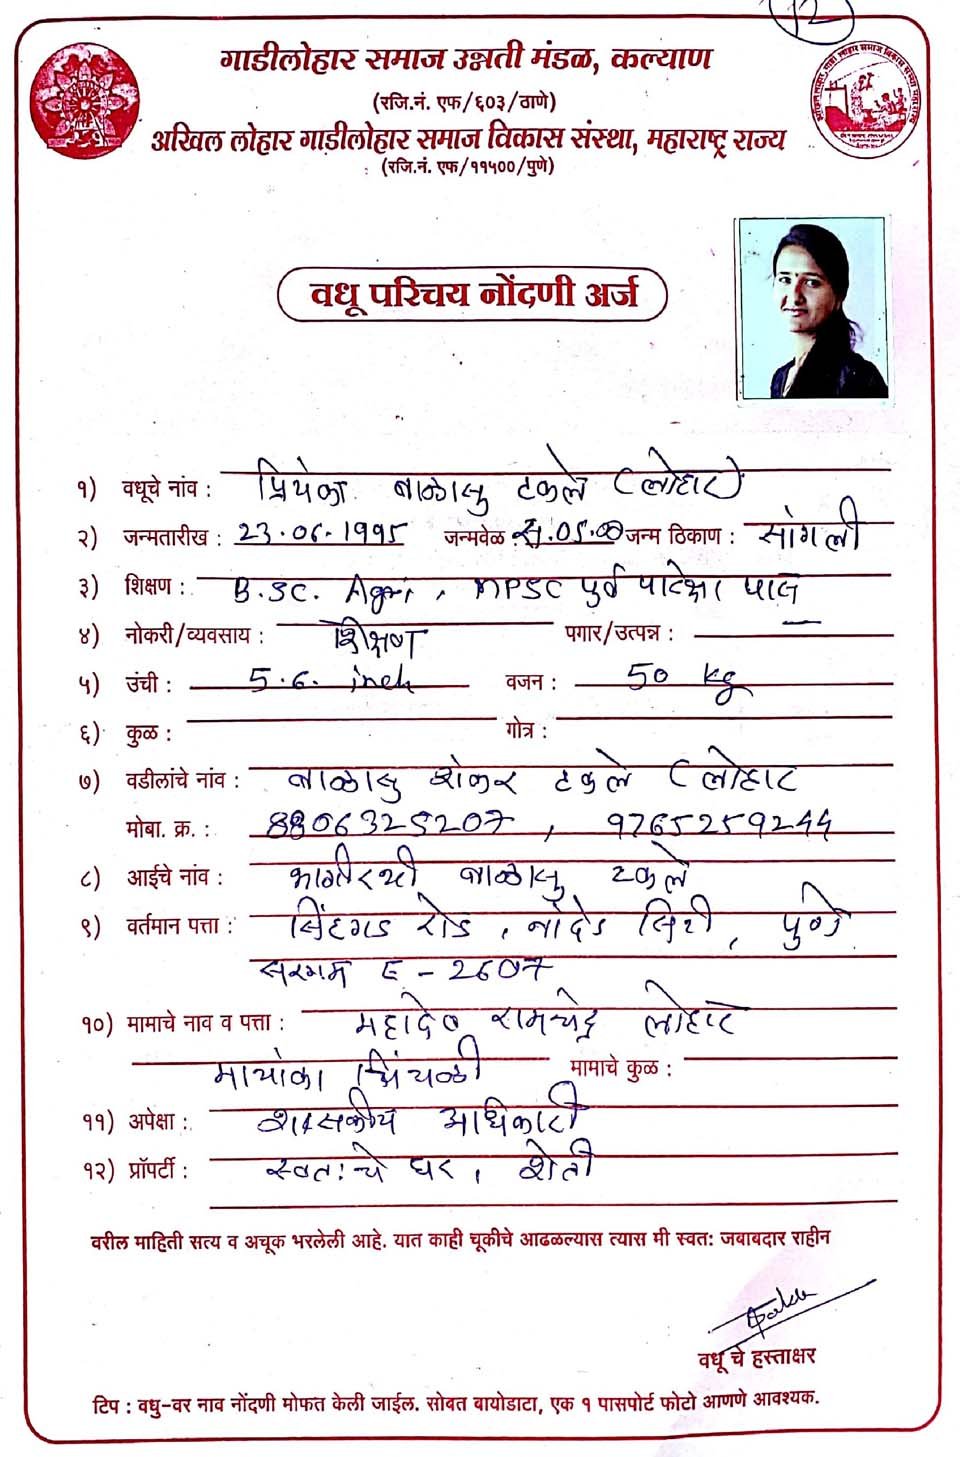 १२
गाडीलोहार समाज उन्नती मंडळ, कल्याण
(रजि.नं. एफ/६०३/ठाणे)
अखिल लोहार गाडीलोहार समाज विकास संस्था, महाराष्ट्र राज्य
(रजि.नं. एफ/११५००/पुणे)
वधू परिचय नोंदणी अर्ज
१) वधूचे नांव : प्रियंका बाळासु टकले (लोहार)
२) जन्मतारीख : 23.06.1995 जन्मवेळ : स.05.00 जन्म ठिकाण : सांगली
३) शिक्षण : B.SC. Agri, MPSC पुर्व परिक्षा पास
४) नोकरी/व्यवसाय : शिक्षण पगार/उत्पन्न : —
५) उंची : 5.6. inch वजन : 50 kg
६) कुळ : गोत्र :
७) वडीलांचे नांव : बाळासु शंकर टकले (लोहार
मोबा. क्र. : 8806325207, 9765259244
८) आईचे नांव : भागीरथी बाळासु टकले
९) वर्तमान पत्ता : सिंहगड रोड, नांदेड सिटी, पुणे
सरगम E-2607
१०) मामाचे नाव व पत्ता : महादेव रामचंद्र लोहार
मायाका चिंचळी मामाचे कुळ :
११) अपेक्षा : शासकीय अधिकारी
१२) प्रॉपर्टी : स्वतःचे घर, शेती
वरील माहिती सत्य व अचूक भरलेली आहे. यात काही चूकीचे आढळल्यास त्यास मी स्वतः जबाबदार राहीन
वधू चे हस्ताक्षर
टिप : वधु-वर नाव नोंदणी मोफत केली जाईल. सोबत बायोडाटा, एक १ पासपोर्ट फोटो आणणे आवश्यक.